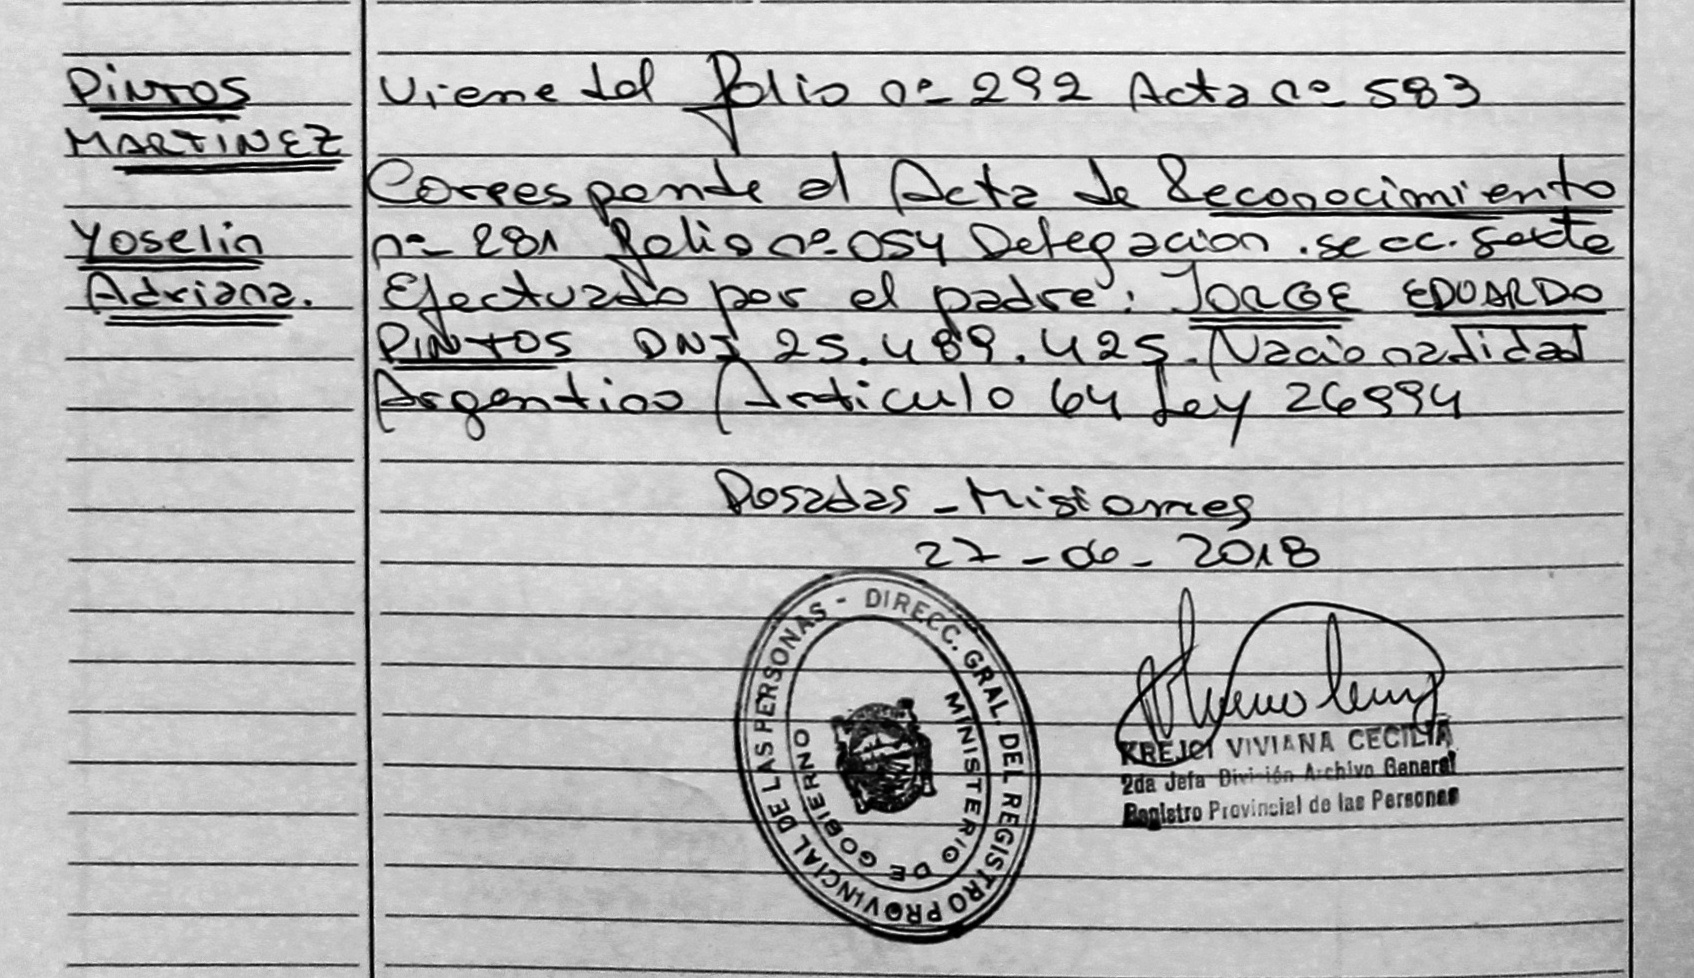 PINTOS
MARTINEZ
Yoselin
Adriana.
Viene del folio nº 292 Acta nº 583
Corresponde al Acta de Reconocimiento
nº 281 folio nº 054 Delegacion .secc. sexta
Efectuado por el padre: JORGE EDUARDO
PINTOS DNI 25.489.425. Nacionalidad
Argentino Articulo 64 Ley 26994
Posadas - Misiones
27-06-2018
DIRECC. GRAL. DEL REGISTRO PROVINCIAL DE LAS PERSONAS -
MINISTERIO DE GOBIERNO
KREJCI VIVIANA CECILIA
2da Jefa División Archivo General
Registro Provincial de las Personas